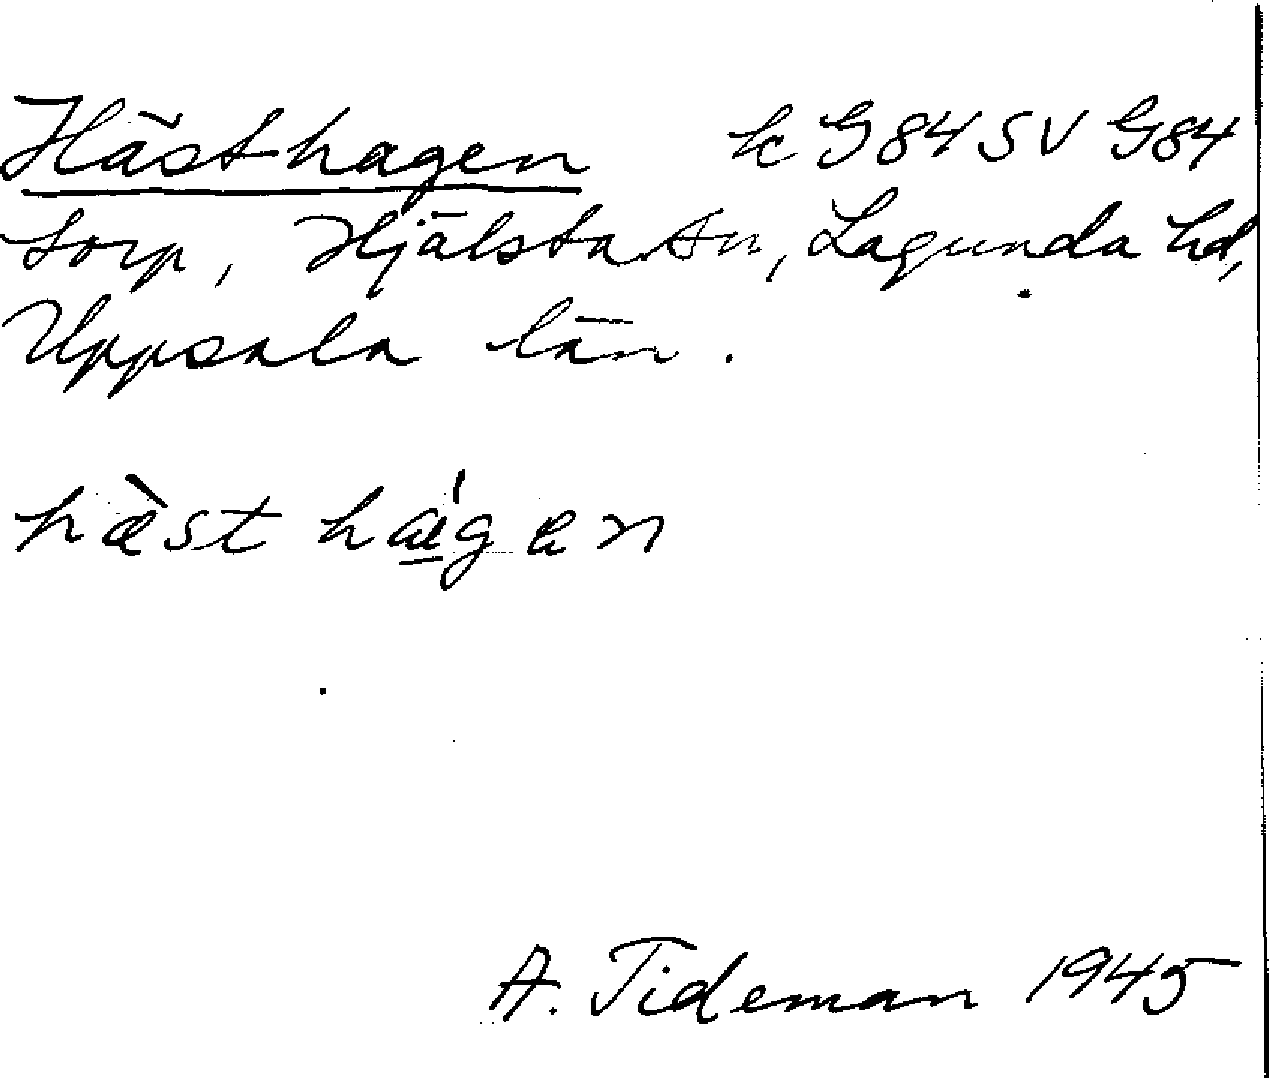 Hästhagen k G84 SV G84
torp, Hjälsta sn, Lagunda hd,
Uppsala län.
hæ̀st há̱gen
A. Tideman 1945